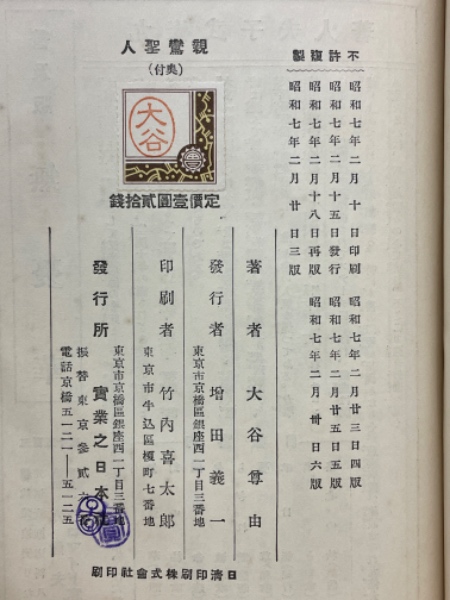 不許複製
昭和七年二月十日印刷
昭和七年二月十五日發行
昭和七年二月十八日再版
昭和七年二月廿日三版
昭和七年二月廿三日四版
昭和七年二月廿五日五版
昭和七年二月卅日六版
親鸞聖人
(奥付)
大谷
定價壹圓貳拾錢
著者 大谷尊由
東京市京橋區銀座西一丁目三番地
發行者 增田義一
東京市牛込區榎町七番地
印刷者 竹內喜太郎
東京市京橋區銀座西一丁目三番地
發行所 實業之日本
振替東京參貳六
電話京橋五一二一——五一二五
日淸印刷株式會社印刷